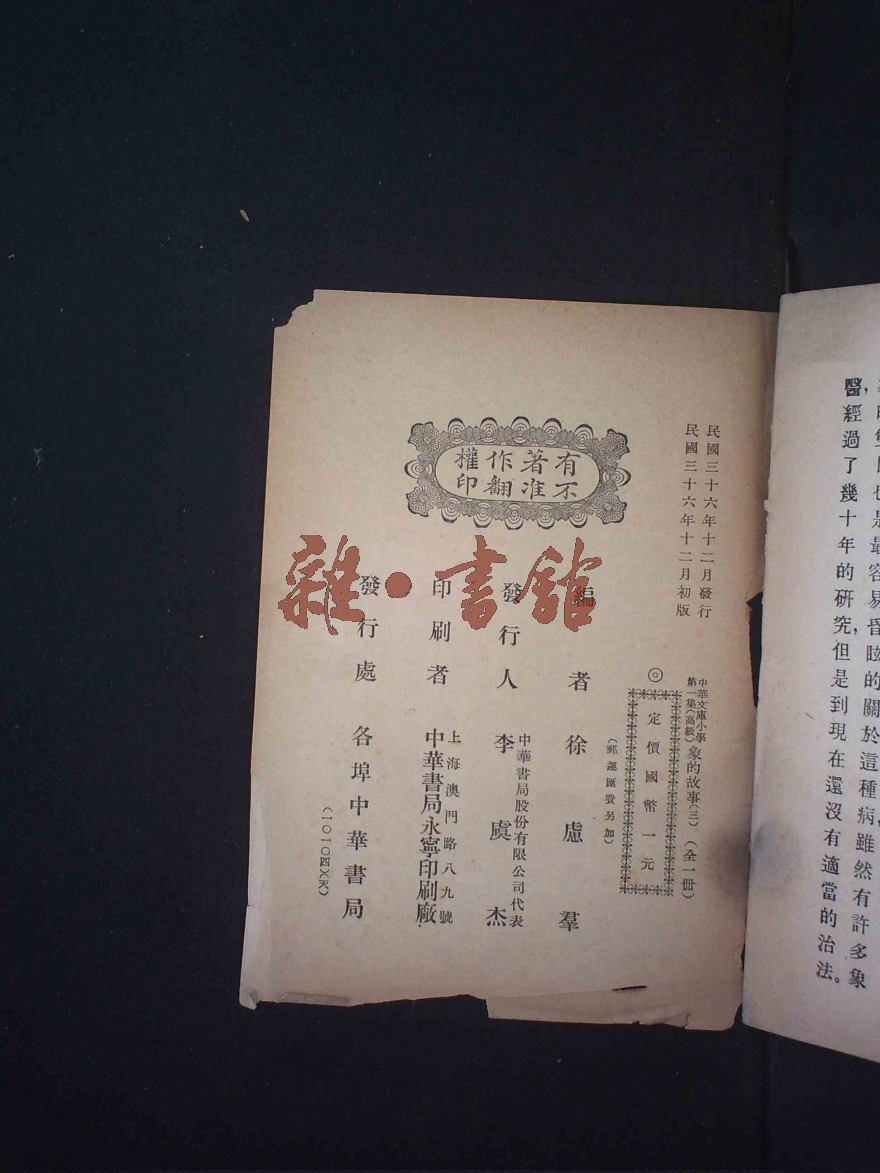 醫，經過了幾十年的研究，但是到現在還沒有適當的治法。
民國三十六年十二月發行
民國三十六年十二月初版
中華文庫小學
第一集(高級)
象的故事(三)(全一冊)
◎
定價國幣一元
(郵運匯費另加)
有著作權
不准翻印
編者 徐慮羣
發行人 中華書局股份有限公司代表
李虞杰
印刷者 上海澳門路八九號
中華書局永寧印刷廠
發行處 各埠中華書局
(一〇一〇四)(天)
雜·書館